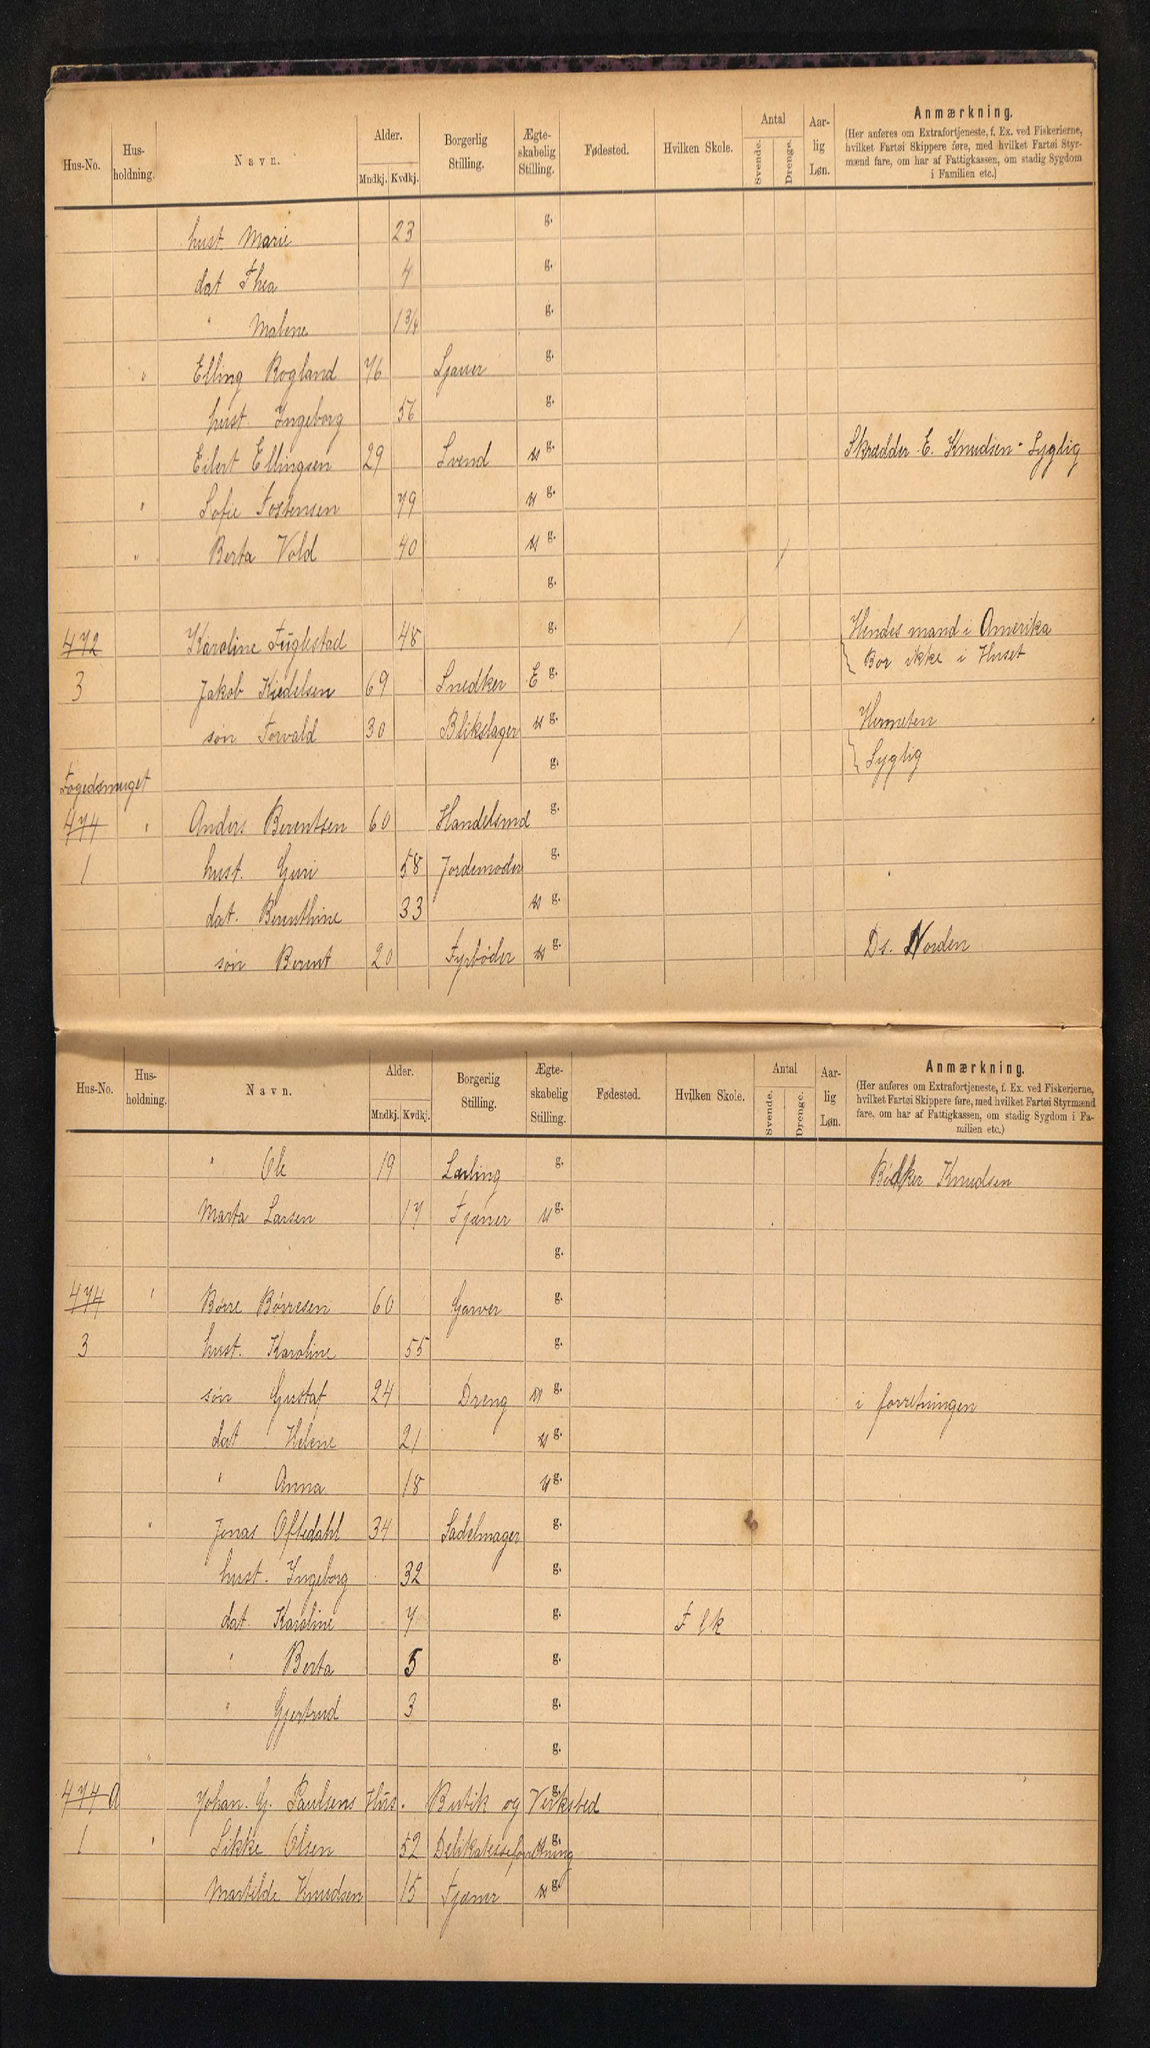 Hus-No. Hus-holdning. Navn. Alder. Mndkj. Kvdkj. Borgerlig Stilling. Ægte-skabelig Stilling. Fødested. Hvilken Skole. Antal Svende. Drenge. Aar-lig Løn. Anmærkning.
(Her anføres om Extrafortjeneste, f. Ex. ved Fiskerierne, hvilket Fartøi Skippere føre, med hvilket Fartøi Styrmænd fare, om har af Fattigkassen, om stadig Sygdom i Familien etc.)
hust Marie 23 g.
dat Thea 4 g.
" Malene 1 3/4 g.
" Elling Rogland 76 Sjauer g.
hust. Ingeborg 56 g.
Eilert Ellingsen 29 Svend u g. Skrædder E. Knudsen - Syglig
" Sofie Tostensen 79 u g.
" Berta Vold 40 u g.
g.
472 Karoline Fuglestad 48 g. Hendes mand i Amerika
Bor ikke i Huset
3 Jakob Kiedelsen 69 Snedker E g.
søn Torvald 30 Blikslager u g. Hermeten
Syglig
g.
Fogedsmuget
474 " Anders Berentsen 60 Handelsmd g.
1 hust. Guri 58 Jordemoder g.
dat. Berenthine 33 u g.
søn Berent 20 Fyrbøder u g. Ds. Norden
Hus-No. Hus-holdning. Navn. Alder. Mndkj. Kvdkj. Borgerlig Stilling. Ægte-skabelig Stilling. Fødested. Hvilken Skole. Antal Svende. Drenge. Aar-lig Løn. Anmærkning.
(Her anføres om Extrafortjeneste, f. Ex. ved Fiskerierne, hvilket Fartøi Skippere føre, med hvilket Fartøi Styrmænd fare, om har af Fattigkassen, om stadig Sygdom i Familien etc.)
" Ole 19 Lærling g. Bødker Knudsen
Marta Larsen 17 Tjener u g.
g.
474 " Børre Børresen 60 Garver g.
3 hust. Karoline 55 g.
søn Gustaf 24 Dreng u g. i forretningen
dat Helene 21 u g.
" Anna 18 u g.
" Jonas Oftedahl 34 Sadelmager g.
hust. Ingeborg 32 g.
dat. Karoline 7 g. F l k
" Berta 5 g.
" Gjertrud 3 g.
" g.
474 A Johan. G. Paulsens Hus. Butik og Verksted g.
1 " Sikke Olsen 52 Delikatesseforretning g.
Martilde Knudsen 15 Tjener u g.